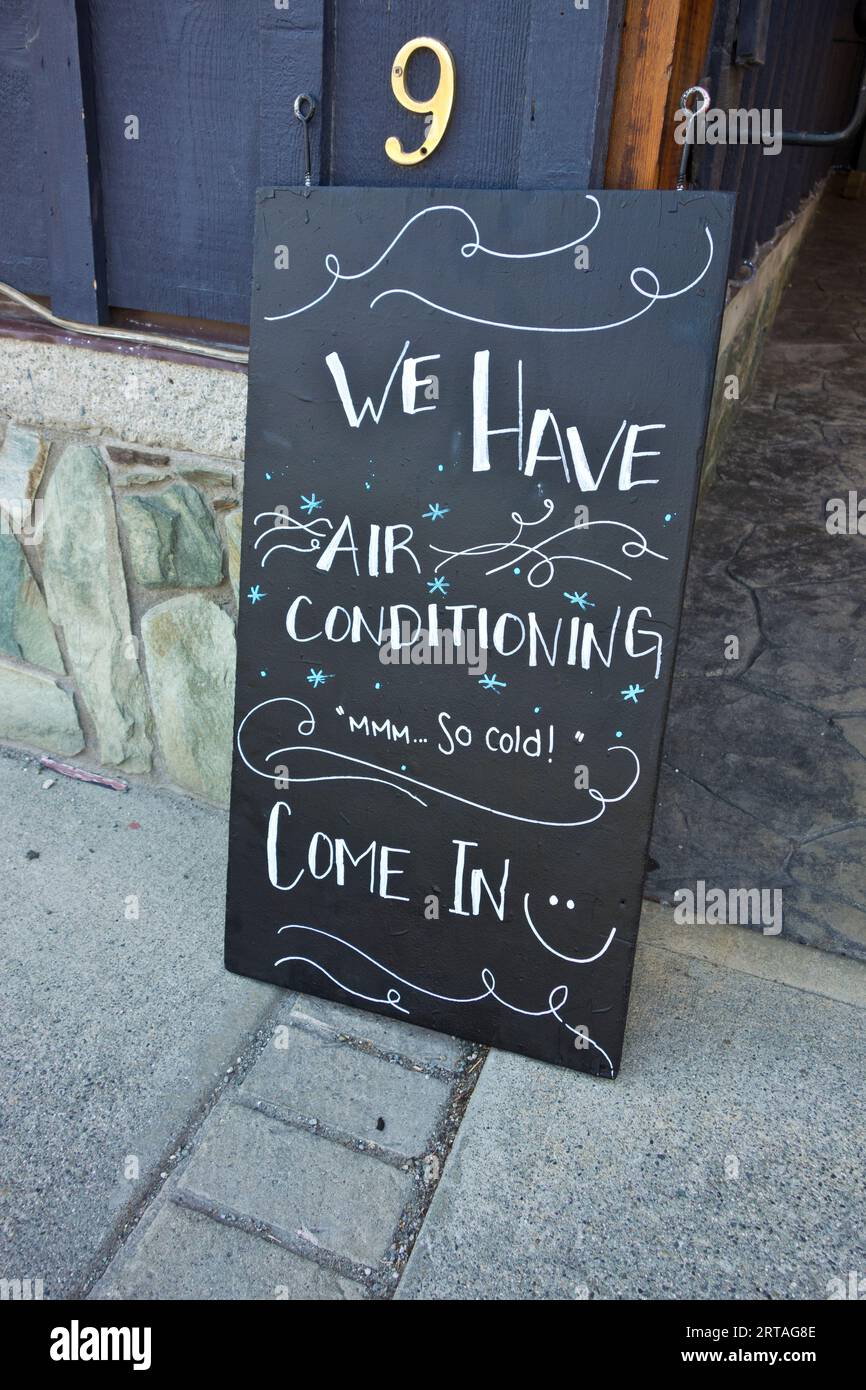 9
WE HAVE
AIR
CONDITIONING
"MMM... So cold!"
COME IN
alamy
Image ID: 2RTAG8E
www.alamy.com